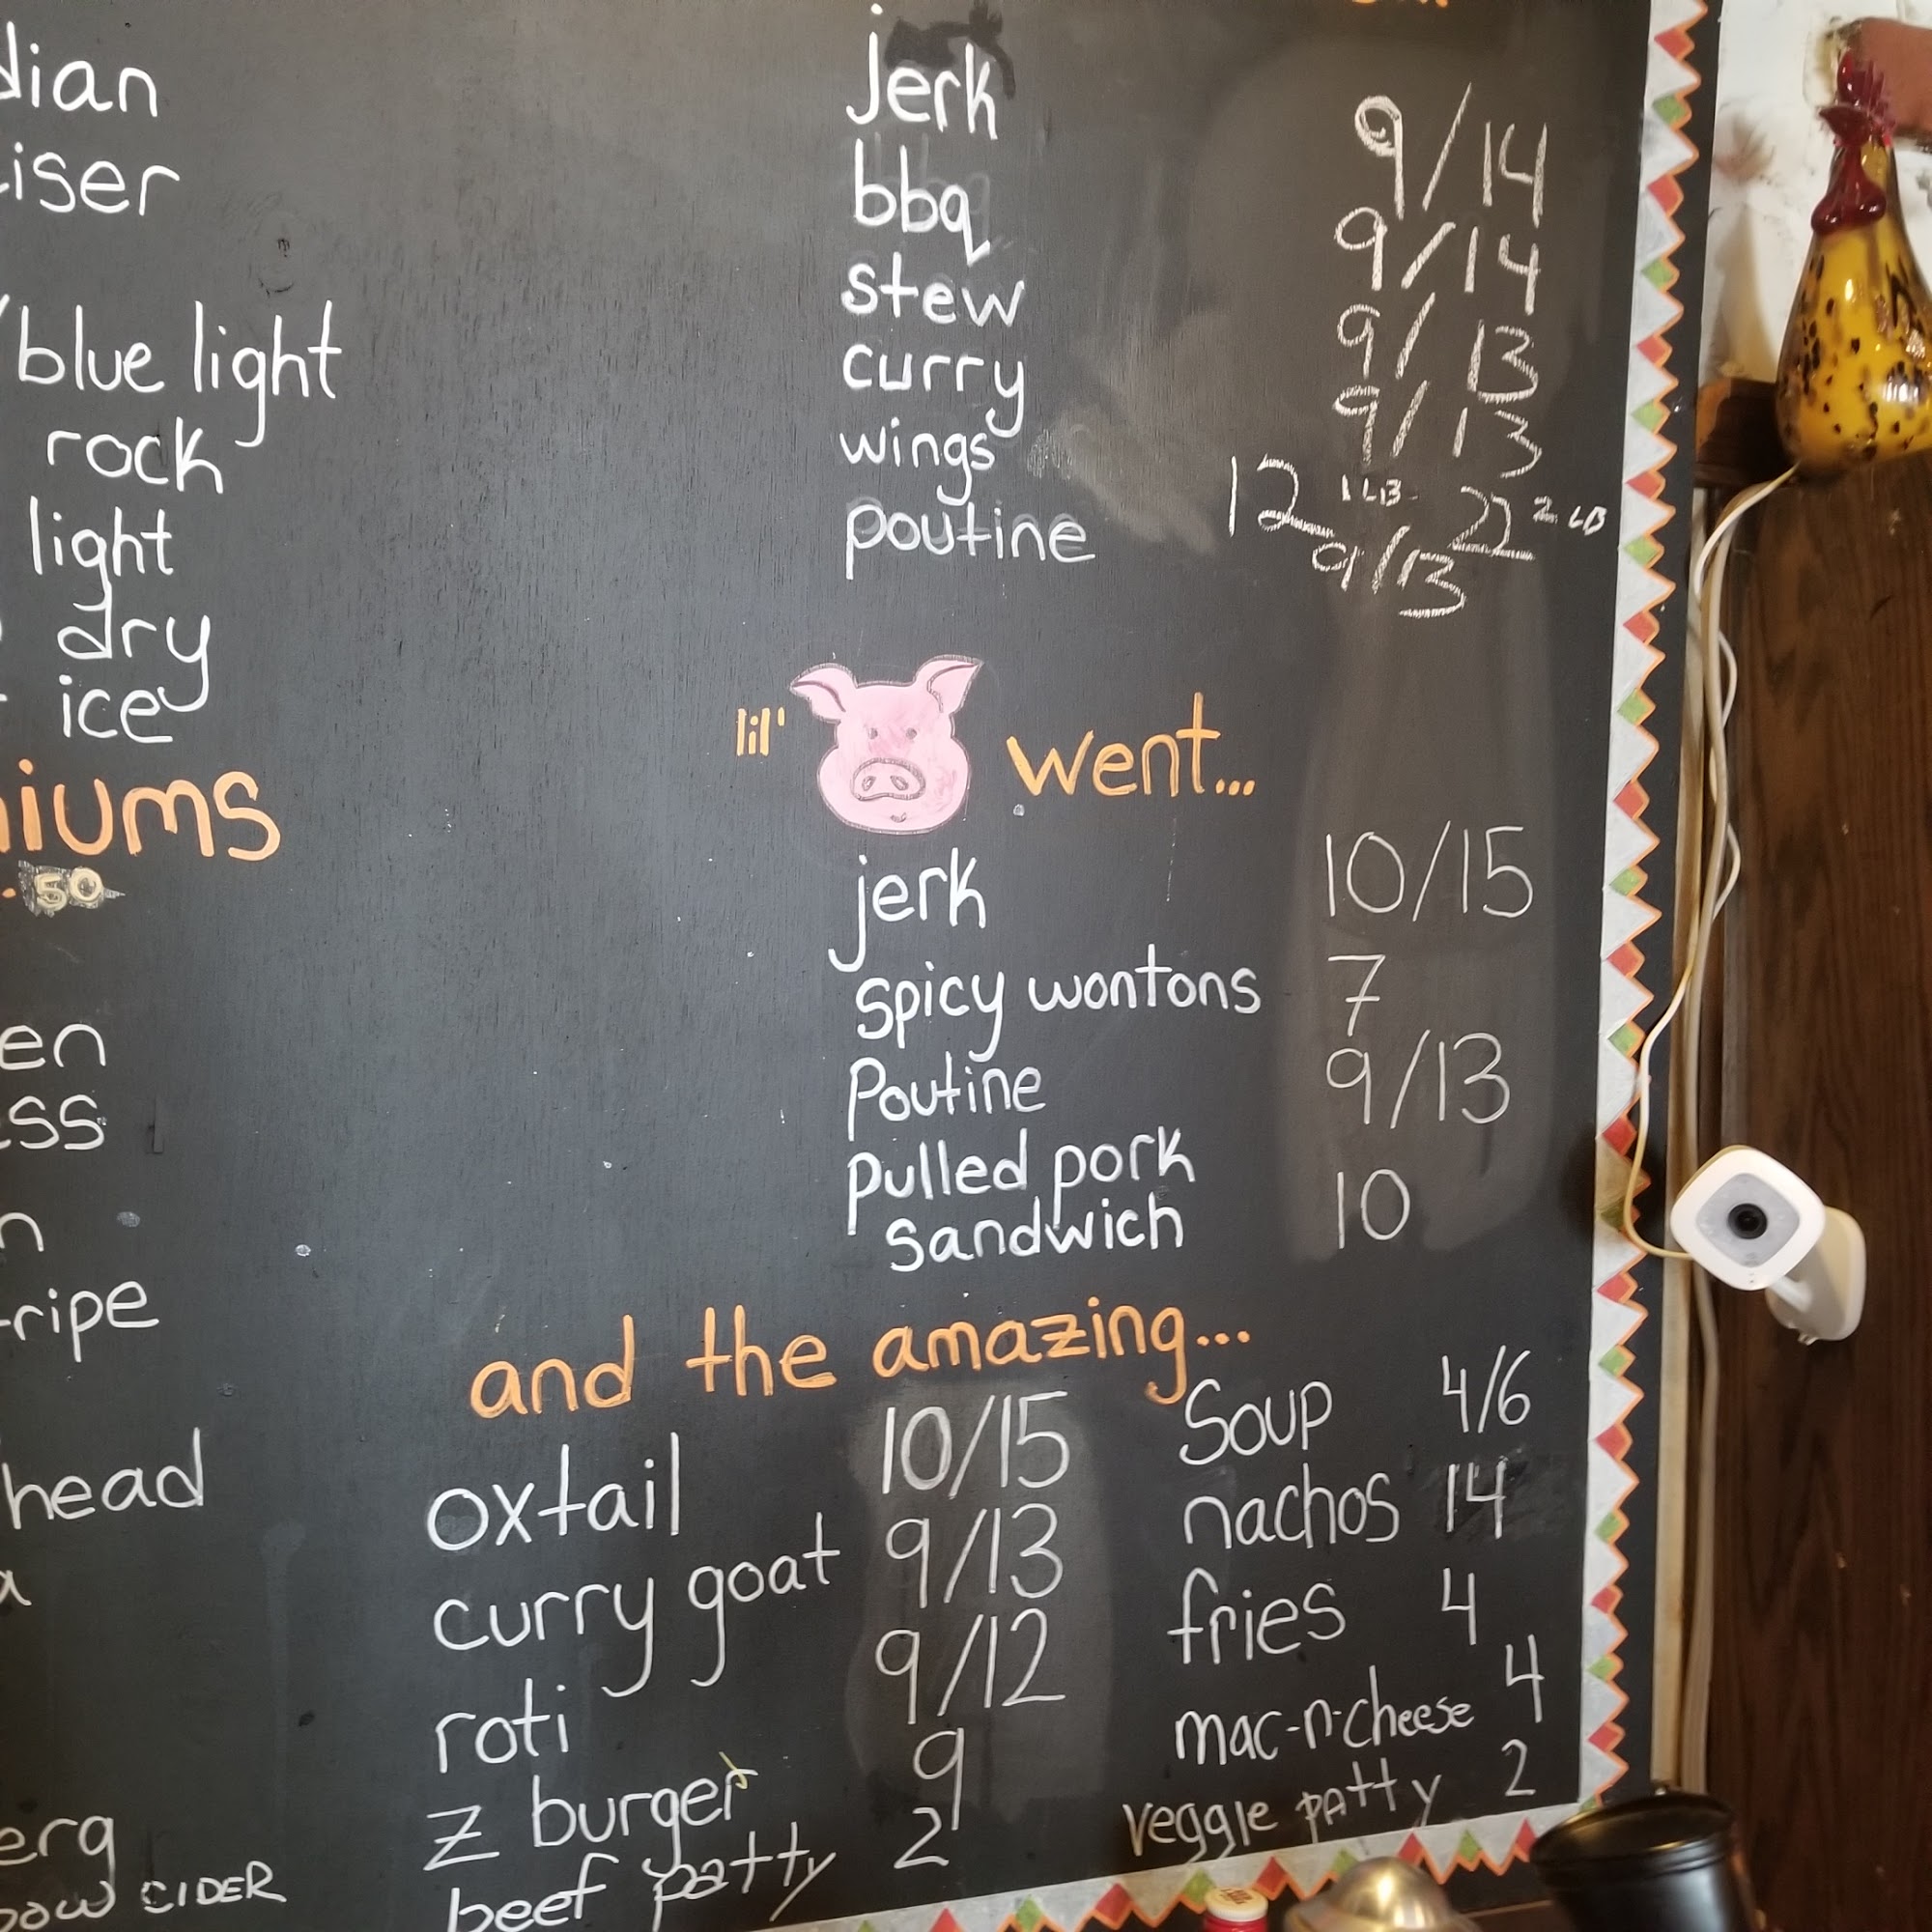 dian
iser
blue light
rock
light
dry
ice
iums
50
en
ss
n
ripe
head
a
erg
bow CIDER
Jerk 9/14
bbq 9/14
stew 9/13
curry 9/13
wings 12 1LB 22 2LB
poutine 9/13
lil' went...
jerk 10/15
spicy wontons 7
Poutine 9/13
pulled pork
sandwich 10
and the amazing...
oxtail 10/15
curry goat 9/13
roti 9/12
z burger 9
beef patty 2
Soup 4/6
nachos 14
fries 4
mac-n-cheese 4
veggie patty 2